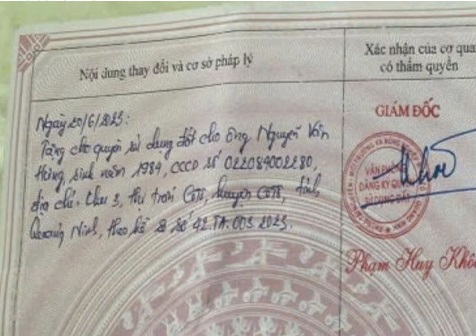 Nội dung thay đổi và cơ sở pháp lý
Xác nhận của cơ quan
có thẩm quyền
Ngày 20/6/2023:
Tặng cho quyền sử dụng đất cho ông Nguyễn Văn
Hùng, sinh năm 1984, CCCD số 022084002280,
địa chỉ: khu 3, thị trấn Cô Tô, huyện Cô Tô, tỉnh
Quảng Ninh, theo hồ sơ số 42.TA.003.2023.
GIÁM ĐỐC
VĂN PHÒNG
ĐĂNG KÝ QUYỀN
SỬ DỤNG ĐẤT
Phạm Huy Khô